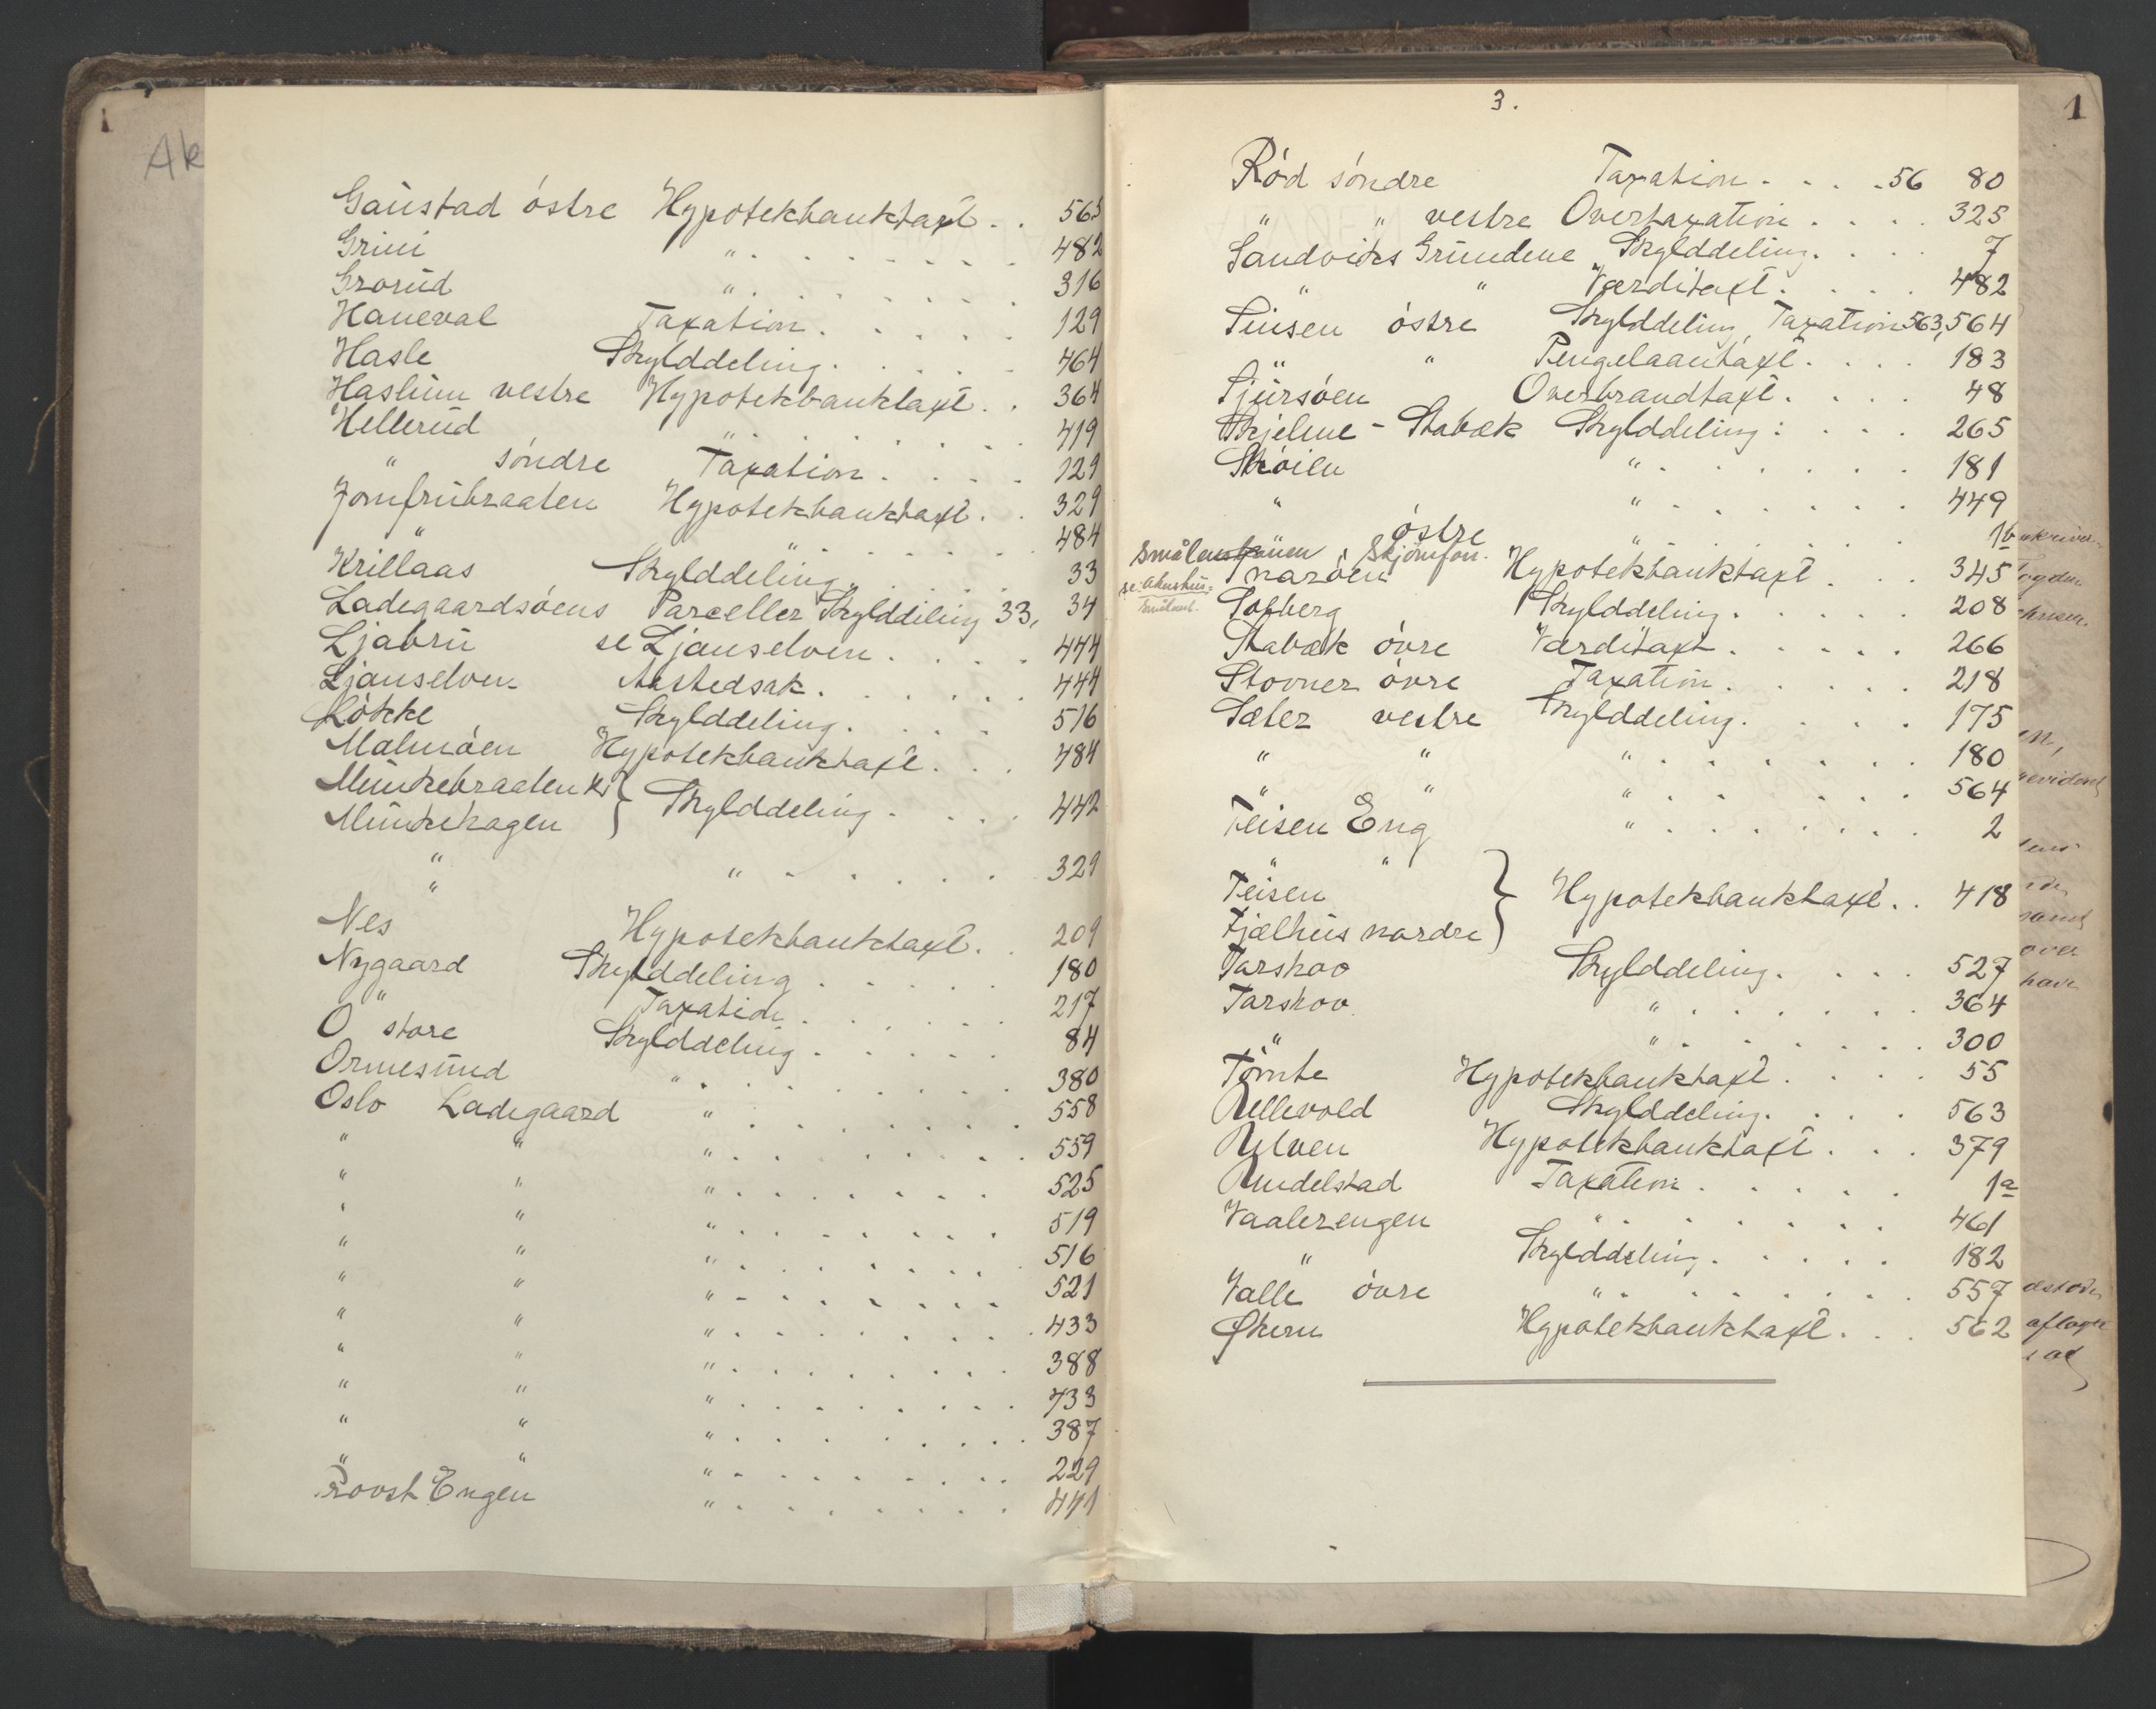 1
Ak
Gaustad östre Hypotekbanktaxt . . 563
Grini " . . . . . . . 482
Grorud " . . . . . . . 316
Haneval Taxation . . . . . 129
Hasle Skylddeling . . . . . 464
Haslum vestre Hypotekbanktaxt . . 364
Hellerud " . . . . . . 419
" söndre Taxation . . . . 129
Jomfrubraaten Hypotekbanktaxt . . 329
" " . . . . . . 484
Krillaas Skylddeling . . . . . 33
Ladegaardsöens Parceller Skylddeling 33, 34
Ljabru se Ljanselven . . . . 444
Ljanselven Aastedsak . . . . . . 444
Lökke Skylddeling . . . . 516
Malmöen Hypotekbanktaxt . . . 484
Munkebraaten &
Munkehagen } Skylddeling . . . . 442
" " . . . . . . 329
"
Nes Hypotekbanktaxt . . 209
Nygaard Skylddeling . . . . . 180
" Taxation . . . . . . 217
O store Skylddeling . . . . . 84
Ormesund " . . . . . . . . 380
Oslo Ladegaard " . . . . . . . 558
" " " . . . . . . . 559
" " " . . . . . . . 525
" " " . . . . . . . 519
" " " . . . . . . . 516
" " " . . . . . . . 521
" " " . . . . . . . 433
" " " . . . . . . . 388
" " " . . . . . . . 433
" " " . . . . . . . 387
" " " . . . . . . . 229
Provst Engen " . . . . . . . 441
3.
1
Röd söndre Taxation . . . . 56 80
" " vestre Overtaxation . . . . 325
Sandvids Grundene Skylddeling . . . . 7
" " Værditaxt . . . . 482
Sinsen östre Skylddeling, Taxation 563, 564
" " Pengelaantaxt . . . . 183
Sjursöen Overbrandtaxt . . . . 48
Skjelne - Stabæk Skylddeling : . . . 265
Sköien " . . . . . . . 181
" " . . . . . . . 449
" östre " . . . . . . 1b
Smålens
se: Akershus:
Snaröen Hypotekbanktaxt . . . 345
Solberg Skylddeling . . . . . 208
Stabæk övre Værditaxt . . . . . 266
Stovner övre Taxation . . . . . 218
Sæter vestre Skylddeling . . . . 175
" " " . . . . . . . 180
" " " . . . . . . 564
Teisen Eng " . . . . . . . 2
" "
Teisen
Tjælhus nordre } Hypotekbanktaxt . . 418
Tarskoo Skylddeling . . . . 527
Tarskoo " . . . . . . . 364
" " . . . . . . . 300
Tömte Hypotekbanktaxt . . . . 55
Ullevold Skylddeling . . . . 563
Ulven Hypotekbanktaxt . . . 379
Undelstad Taxation . . . . . 1a
Vaalerengen " . . . . . . . 461
" Skylddeling . . . . . 182
Valle övre " . . . . . . . 557
Økern Hypotekbanktaxt . . . 562